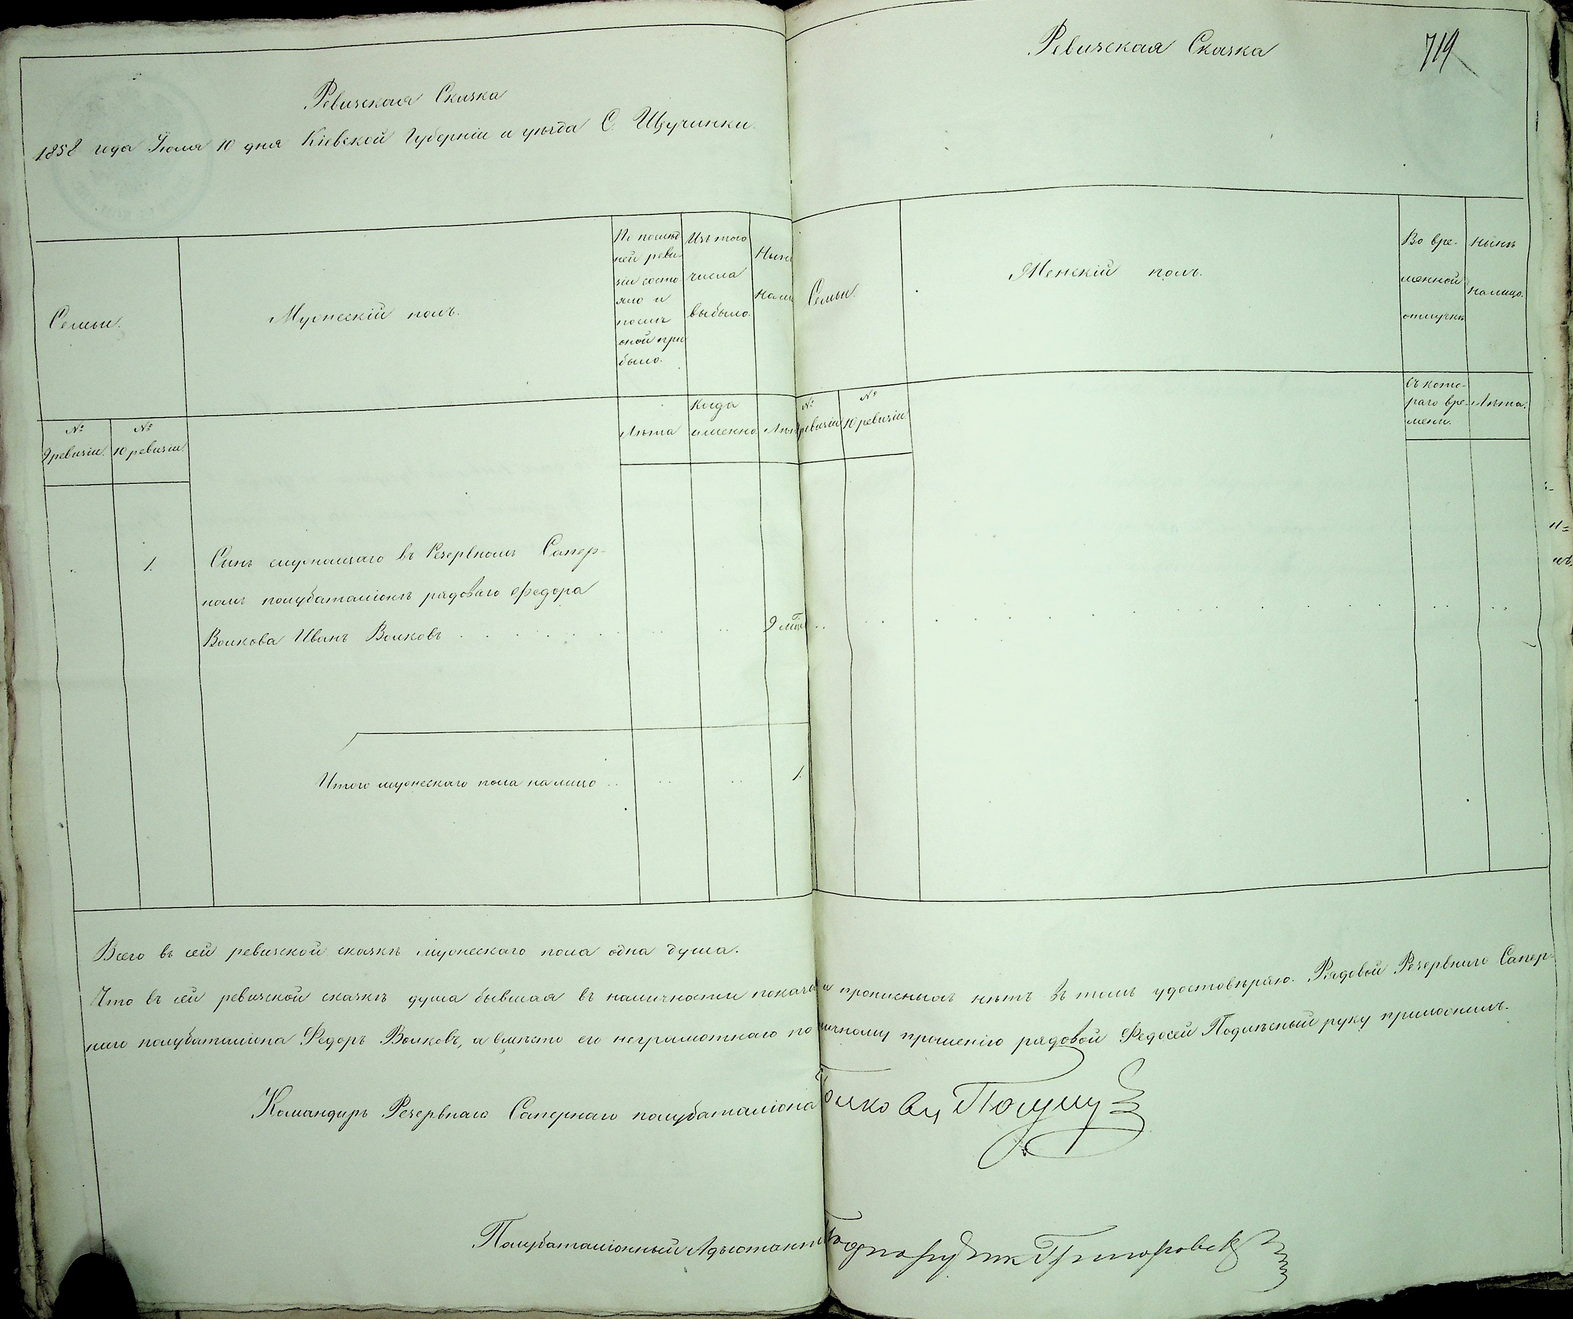 Ревизская Сказка
1858 года Іюля 10 дня Кіевской Губерніи и уѣзда С. Щучинки.
Семьи.
Мужескій полъ.
По послѣд
ней реви
зіи состо
яло и
послѣ
оной при
было.
Изъ того
числа
выбыло.
Нынѣ
нали
№
9 ревизіи.
№
10 ревизіи
Лѣта
Куда
именно
Лѣт
1.
Сынъ служащаго въ Резервномъ Сапер-
номъ полубаталіонѣ рядоваго Федора
Волкова Иванъ Волковъ . . . . . . .
9 лѣтъ
Итого мужескаго пола на лицо ..
1.
Ревизская Сказка
719
Семьи.
Женскій полъ.
Во вре-
менной
отлучкѣ
Нынѣ
на лицо.
№
ревизіи
№
10 ревизіи
Съ кото-
раго вре-
мени.
Лѣта.
Всего въ сей ревизской сказкѣ мужескаго пола одна душа.
Что въ сей ревизской сказкѣ душа бывшая въ наличности показана и прописныхъ нѣтъ въ томъ удостовѣряю. Рядовой Резервнаго Сапер-
наго полубаталіона Федоръ Волковъ, а вмѣсто его неграмотнаго по личному прошенію рядовой Федосей Подлѣсный руку приложилъ.
Командиръ Резервнаго Сапернаго полубаталіона
Полубаталіонный Адъютантъ Подпоручик